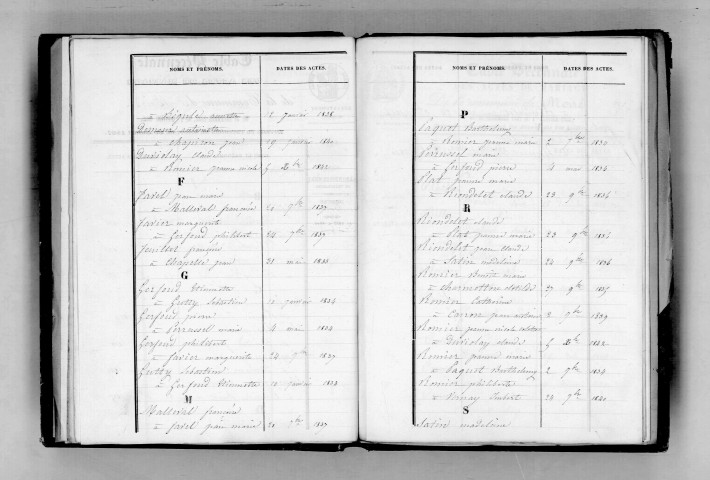 NOMS ET PRÉNOMS. DATES DES ACTES.
12 janvier 1838
Dumier antoinette
à Chapiron jean 19 janvier 1830
Duriolay claude
à Romier jeanne nicole 5 Xbre 1832
F
Favel jean marie
à Malleval françoise 20 7bre 1837
Favier marguerite
à Gerfoud philibert 24 7bre 1837
françoise
à Chapelle jean 21 mai 1835
G
Gerfoud Etiennette
à Gutty Sébastien 10 janvier 1834
Gerfoud pierre
à Perrussel marie 4 mai 1834
Gerfoud philibert
à Favier marguerite 24 7bre 1837
Gutty Sébastien
à Gerfoud Etiennette 10 janvier 1834
M
Malleval françoise
à Favel jean marie 20 7bre 1837
NOMS ET PRÉNOMS. DATES DES ACTES.
P
Paquet Barthelemy
à Romier jeanne marie 2 7bre 1834
Perrussel marie
à Gerfoud pierre 4 mai 1834
Plat jeanne marie
à Riondelet claude 23 9bre 1836
R
Riondelet claude
à Plat jeanne marie 23 9bre 1836
Riondelet jean claude
à Satin madeleine 24 9bre 1836
Romier Benoit marie
à Charmetton clotilde 27 9bre 1835
Romier Catherine
à Caron jean antoine 2 7bre 1839
Romier jeanne nicole
à Duriolay claude 5 Xbre 1832
Romier jeanne marie
à Paquet Barthelemy 2 7bre 1834
Romier philiberte
à Vinay hubert 24 7bre 1830
S
Satin madeleine